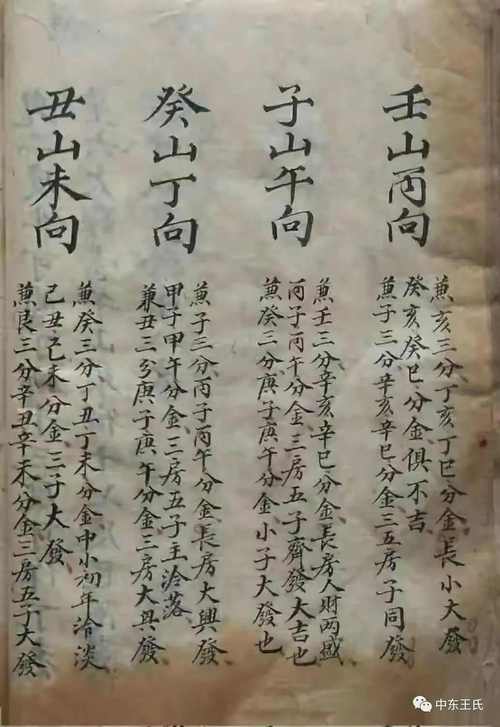 壬山丙向
兼亥三分丁亥丁巳分金長小大發
癸亥癸巳分金俱不吉
兼子三分辛亥辛巳分金三五房子同發
子山午向
兼壬三分辛亥辛巳分金長房人財两盛
丙子丙午分金三房五子齊發大吉也
兼癸三分庚子庚午分金小子大發也
癸山丁向
兼子三分丙子丙午分金長房大興發
甲子甲午分金三房五子主冾落
兼丑三分庚子庚午分金三房大興發
丑山未向
兼癸三分丁丑丁未分金中小初年冾淡
己丑己未分金三子大發
兼艮三分辛丑辛未分金三房五子大發
中东王氏